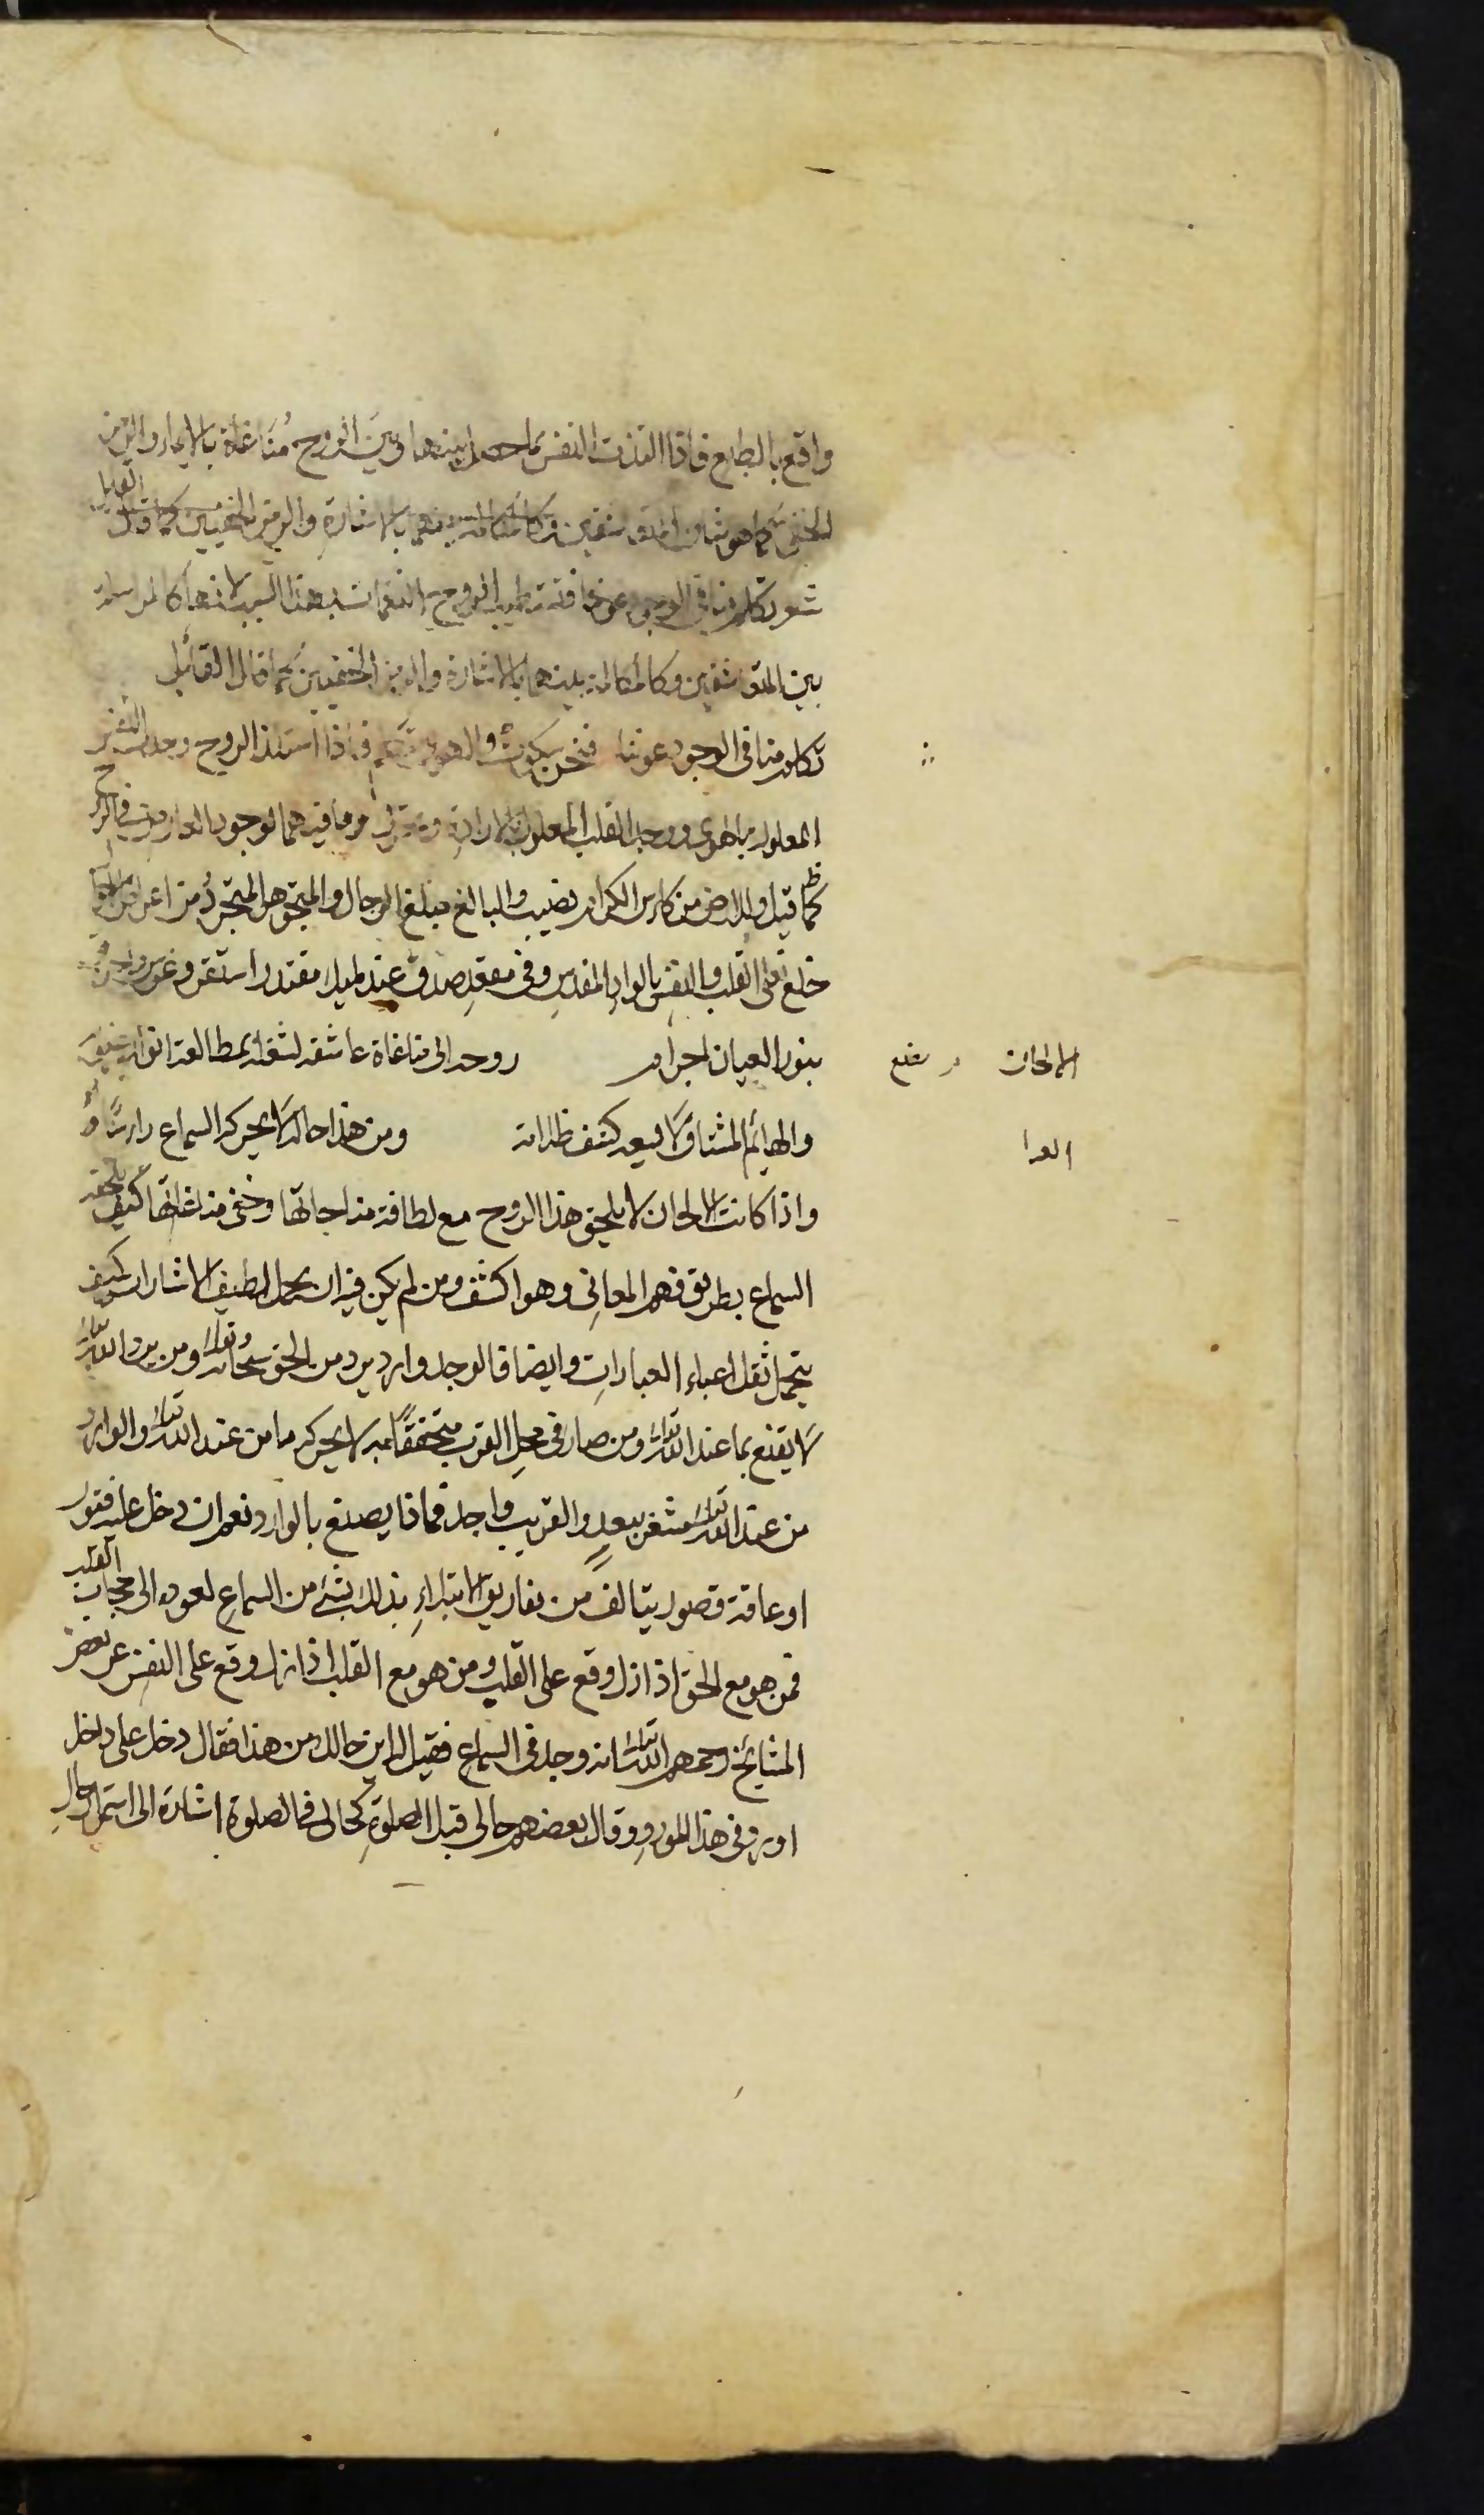 واقع بالطبع فاذا التذت النفس بما بينهما وبين الروح مُناغاة بالايماء والرمز
الخفى كما هو شان المتعاشقين وكالمكالمة بينهما بالاشارة والرمز الخفيين كما قال القايل
شعر تكلم منا فى الوجوه عيوننا النغمات بهذا السبب لانها كالمراسلة
بين المتعاشقين وكالمكالمة بينهما بالاشارة والرمز الخفيين كما قال القائل
تكلم منا فى الوجوه عيوننا فنحن سكوت والهوى يتكلم فاذا استلذ الروح وجدت النفس
المعلولة بالهوى ووجد القلب المعلول بالارادة وتحرك بما فيهما لوجود العارض فى الروح
كما قيل وللارض من كاس الكرام نصيب والبالغ مبلغ الرجال والمتجوهر المتجرد من اعراض
خلع نعلى القلب والنفس بالواد المقدس وفى مقعد صدق عند مليك مقتدر استقر وعرس واحرق
بنور العيان اجرام روحه الى مناغاة عاشقه لشغله بمطالعة انوار
الالحان
والهائم المشتاق لا يسعه كشف ظلامة ومن هذا حاله لا يحركه السماع راسًا
واذا كانت الالحان لا يلحق هذا الروح مع لطافة مناجاتها وخفى مناغاتها كيف يلحقه
السماع بطريق فهم المعانى وهو اكثف ومن لم يكن فيه ان يحمل لطيف الاشارات كيف
يتحمل ثقل اعباء العبارات وايضا فالوجد وارد يرد من الحق سبحانه وتعالى ومن يرد الله تعالى
لا يقنع بما عند الله تعالى ومن صار فى محل القرب متحققًا به لا يحركه ما من عند الله تعالى والوارد
من عند الله تعالى مشعر ببعدٍ والقريب واجد فماذا يصنع بالوارد نعم ان دخل عليه فتور
او عاقه قصور يتالف من تفاريق الابتلاء بذلك بشئ من السماع لعوده الى حجاب القلب
فمن هو مع الحق اذا زل وقع على القلب ومن هو مع القلب اذا زل وقع على النفس عن بعض
المشائخ رحمهم الله تعالى انه وجد فى السماع فقيل له اين حالك من هذا فقال دخل على داخل
اوردنى هذا المورد وقال بعضهم حالى قبل الصلوة كحالى فى الصلوة اشارة الى استمرار حال